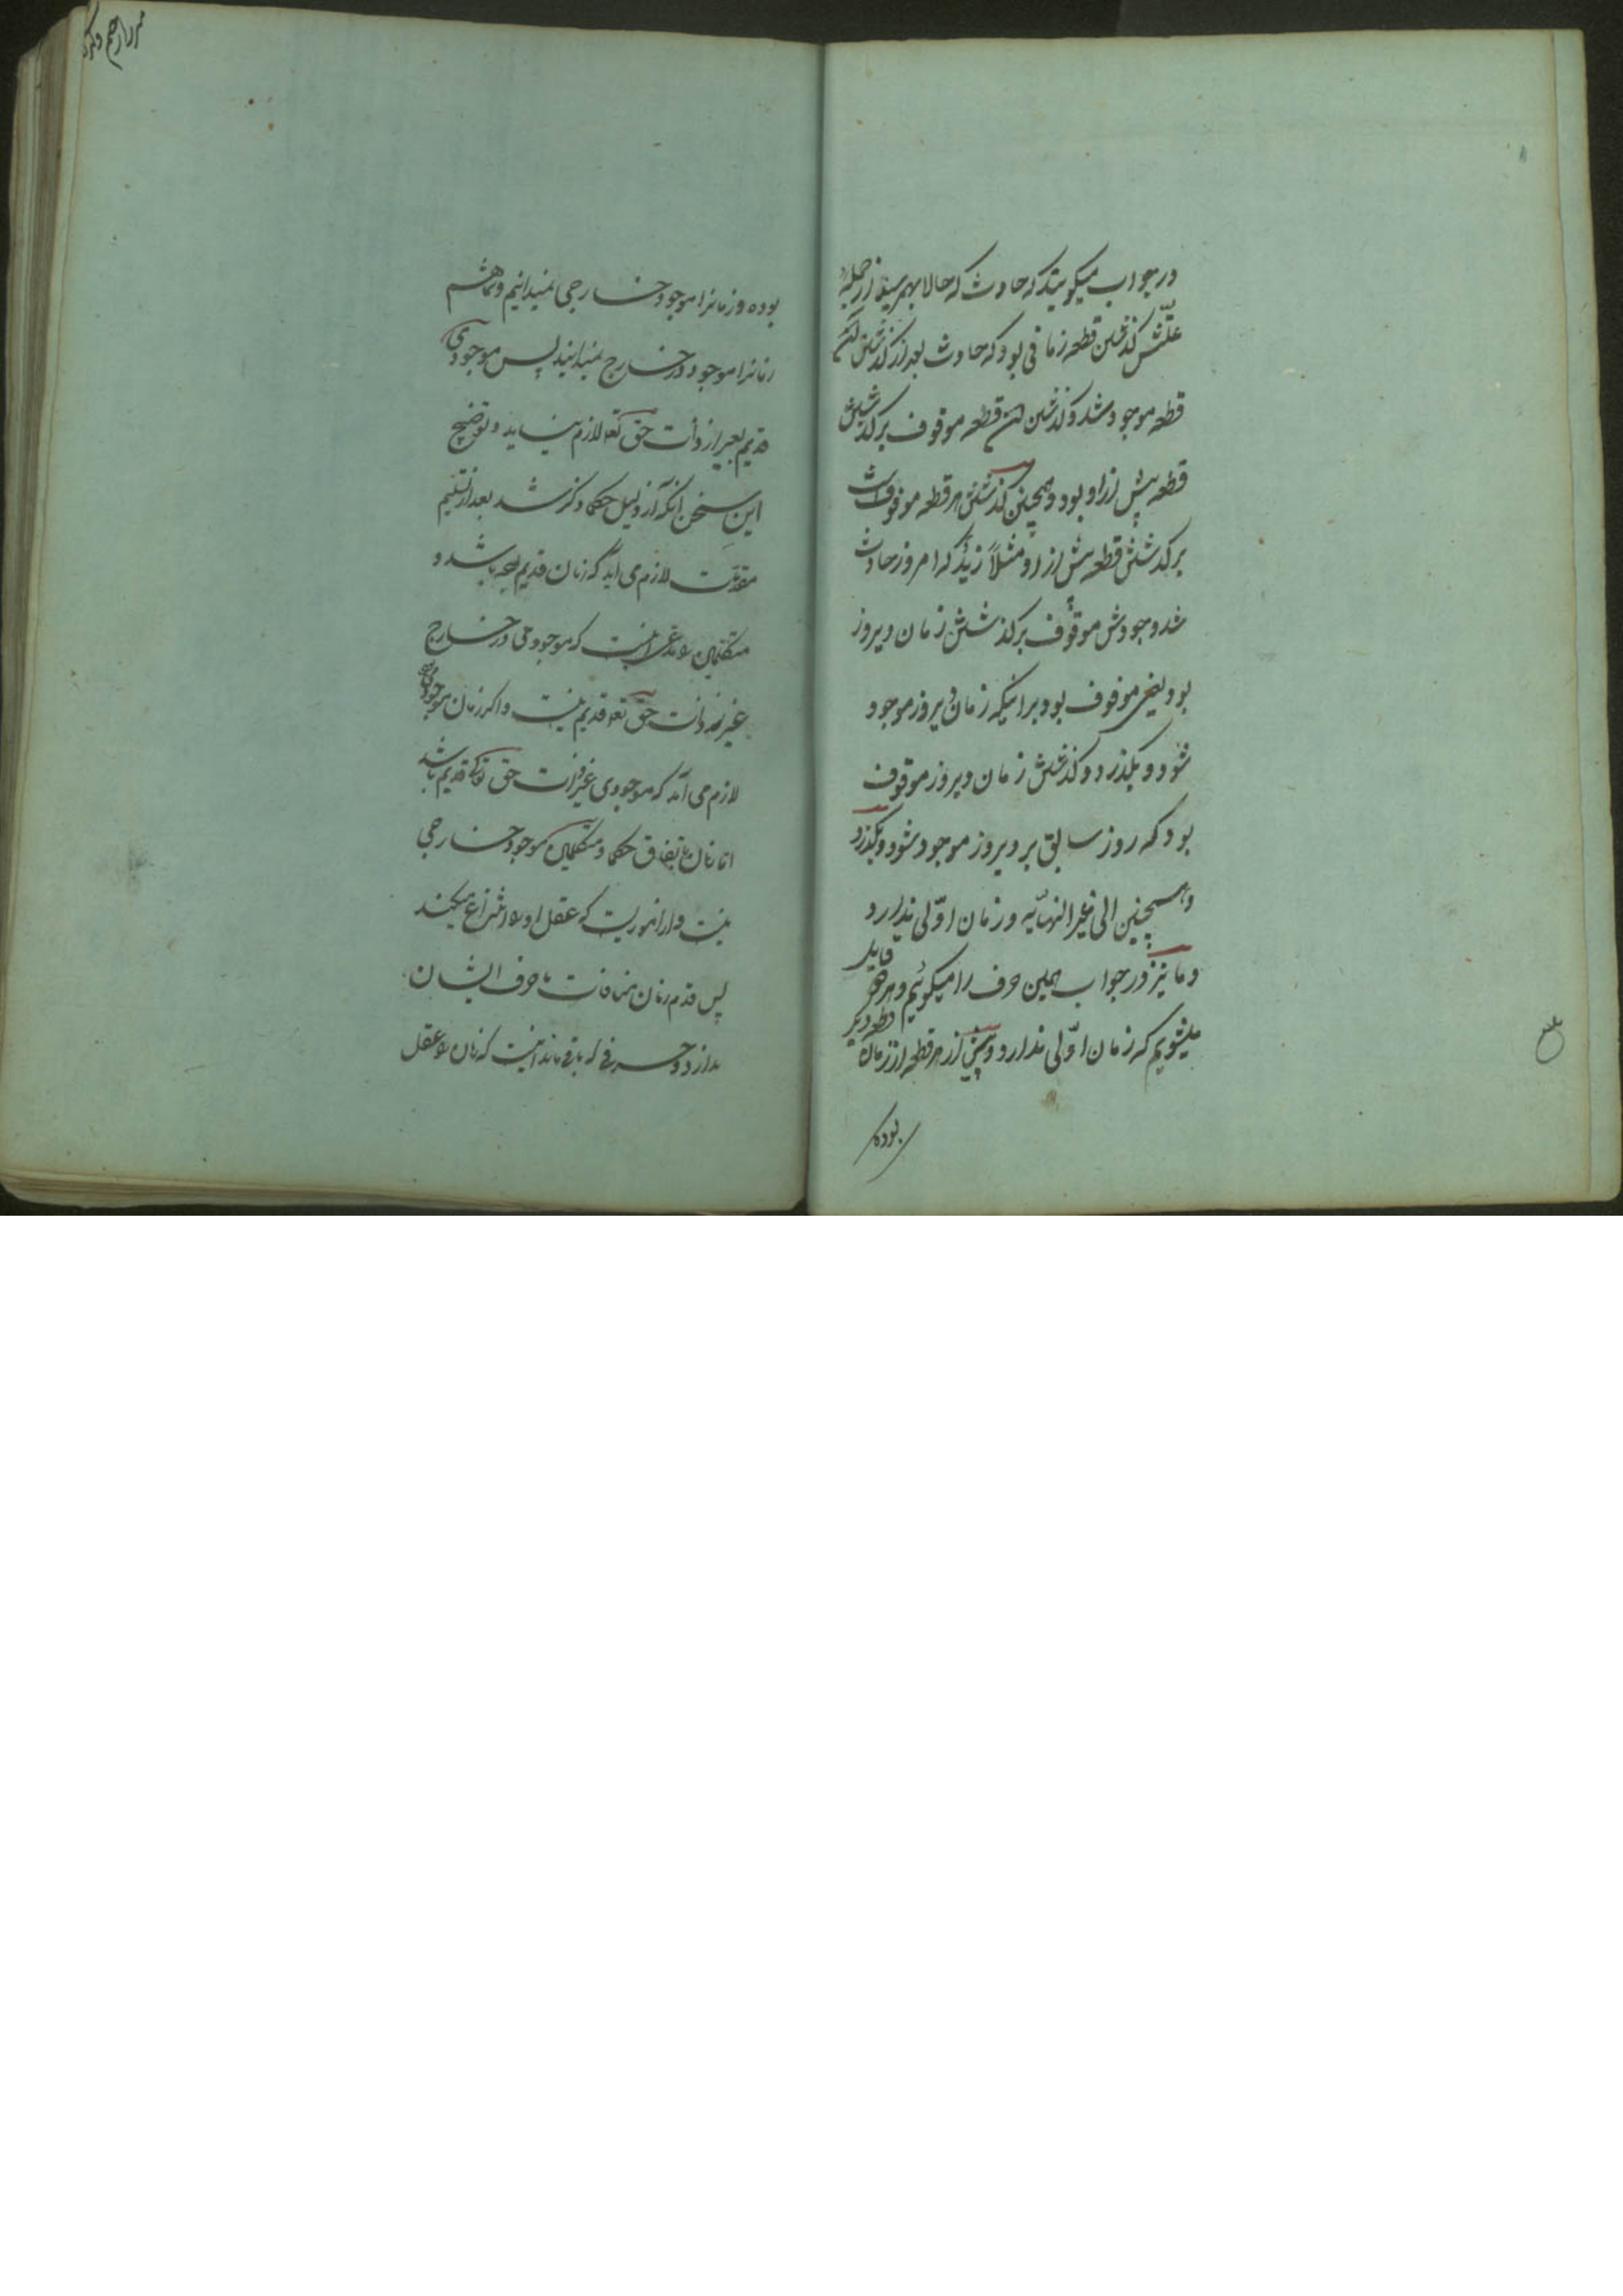 در جواب میگویند که حادث که حالا بهم رسید از جمله
علّتش گذشتن قطعه زمانی بود که حادث بعد از گذشتن آن
قطعه موجود شد و گذشتن آن قطعه موقوف بر گذشتن
قطعه پیش از او بود و همچنین گذشتن هر قطعه موقوفست
بر گذشتن قطعه پیش از او مثلاً زید که امروز حادث
شد وجودش موقوف بر گذشتن زمان دیروز
بود یعنی موقوف بود بر اینکه زمان دیروز موجود
شود و بگذرد و گذشتن زمان دیروز موقوف
بود که روز سابق بر دیروز موجود شود و بگذرد
و همچنین الی غیر النهایه و زمان اوّلی ندارد
و ما نیز در جواب همین حرف را میگوئیم و هرگاه قایل
میشویم که زمان اوّلی ندارد و پیش از هر قطعه از زمان قطعه دیگر
بوده
بوده و زمانرا موجود خارجی نمیدانیم و شما هم
زمانرا موجود در خارج نمیدانید پس موجودی
قدیم بغیر از ذات حق تعالی لازم نمیآید و توضیح
این سخن آنکه از دلیل حکما که ذکر شد بعد از تسلیم
مقدمات لازم می آید که زمان قدیم باشد و
متکلمین را مدعی اینست که موجودی در خارج
غیر از ذات حق تعالی قدیم نیست و اگر زمان موجود
لازم می آمد که موجودی غیر ذات حق تعالی قدیم باشد
امّا زمان باتفاق حکما و متکلمین موجود خارجی
نیست و از اموریست که عقل او را انتزاع میکند
پس قدم زمان منافات با حرف ایشان
ندارد و حرفی که باقی ماند اینست که زمان را عقل